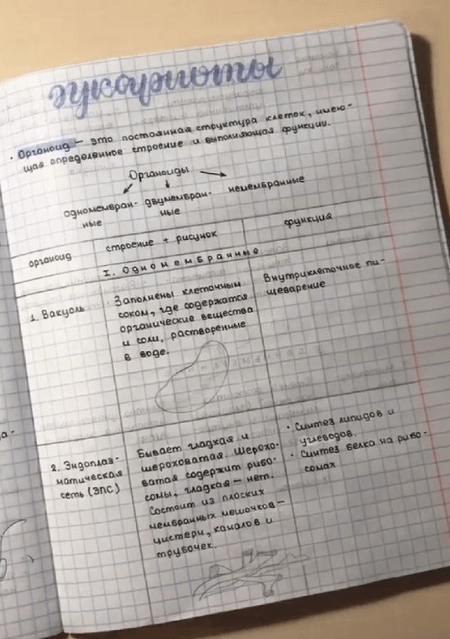 эукариоты
· Органоид – это постоянная структура клеток, имею-
щая определенное строение и выполняющая функции.
Органоиды
одномембран-
ные
двумембран-
ные
немембранные
органоид
строение + рисунок
функция
I. Одномембранные
1. Вакуоль
Заполнены клеточным
соком, где содержатся
органические вещества
и соли, растворенные
в воде.
Внутриклеточное пи-
щеварение
2. Эндоплаз-
матическая
сеть (ЭПС)
Бывает гладкая и
шероховатая. Шерохо-
ватая содержит рибо-
сомы, гладкая – нет.
Состоит из плоских
мембранных мешочков –
цистерн, каналов и
трубочек.
· Синтез липидов и
углеводов.
· Синтез белка на рибо-
сомах